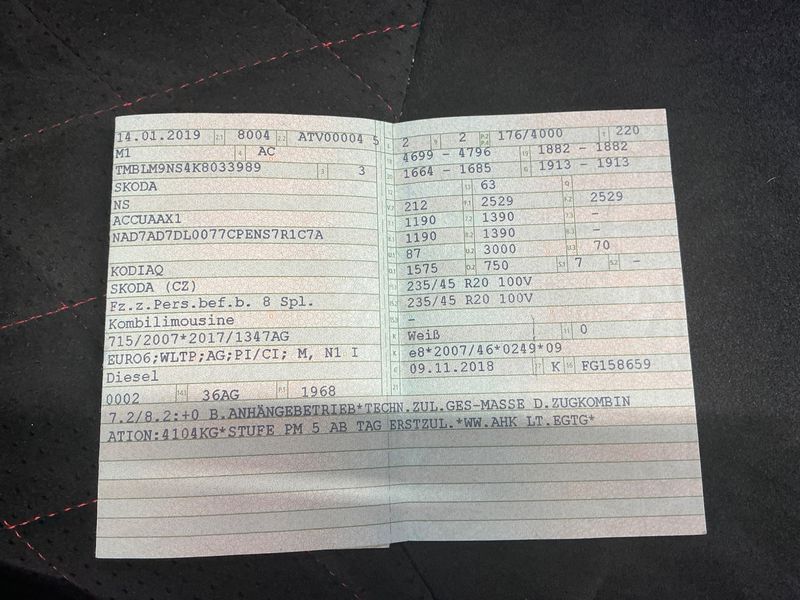 14.01.2019 2.1 8004 2.2 ATV00004 5
M1 4 AC
TMBLM9NS4K8033989 3 3
SKODA
NS
ACCUAAX1
NAD7AD7DL0077CPENS7R1C7A
KODIAQ
SKODA (CZ)
Fz.z.Pers.bef.b. 8 Spl.
Kombilimousine
715/2007*2017/1347AG
EURO6;WLTP;AG;PI/CI; M, N1 I
Diesel
0002 14.1 36AG P.1 1968
L 2 9 2 P.2 P.4 176/4000 T 220
18 4699 - 4796 19 1882 - 1882
20 1664 - 1685 G 1913 - 1913
12 13 63 Q
V.7 212 F.1 2529 F.2 2529
7.1 1190 7.2 1390 7.3 -
8.1 1190 8.2 1390 8.3 -
U.1 87 U.2 3000 U.3 70
O.1 1575 O.2 750 S.1 7 S.2 -
15.1 235/45 R20 100V
15.2 235/45 R20 100V
15.3 -
R Weiß 11 0
K e8*2007/46*0249*09
6 09.11.2018 17 K 16 FG158659
21
7.2/8.2:+0 B.ANHÄNGEBETRIEB*TECHN.ZUL.GES-MASSE D.ZUGKOMBIN
ATION:4104KG*STUFE PM 5 AB TAG ERSTZUL.*WW.AHK LT.EGTG*